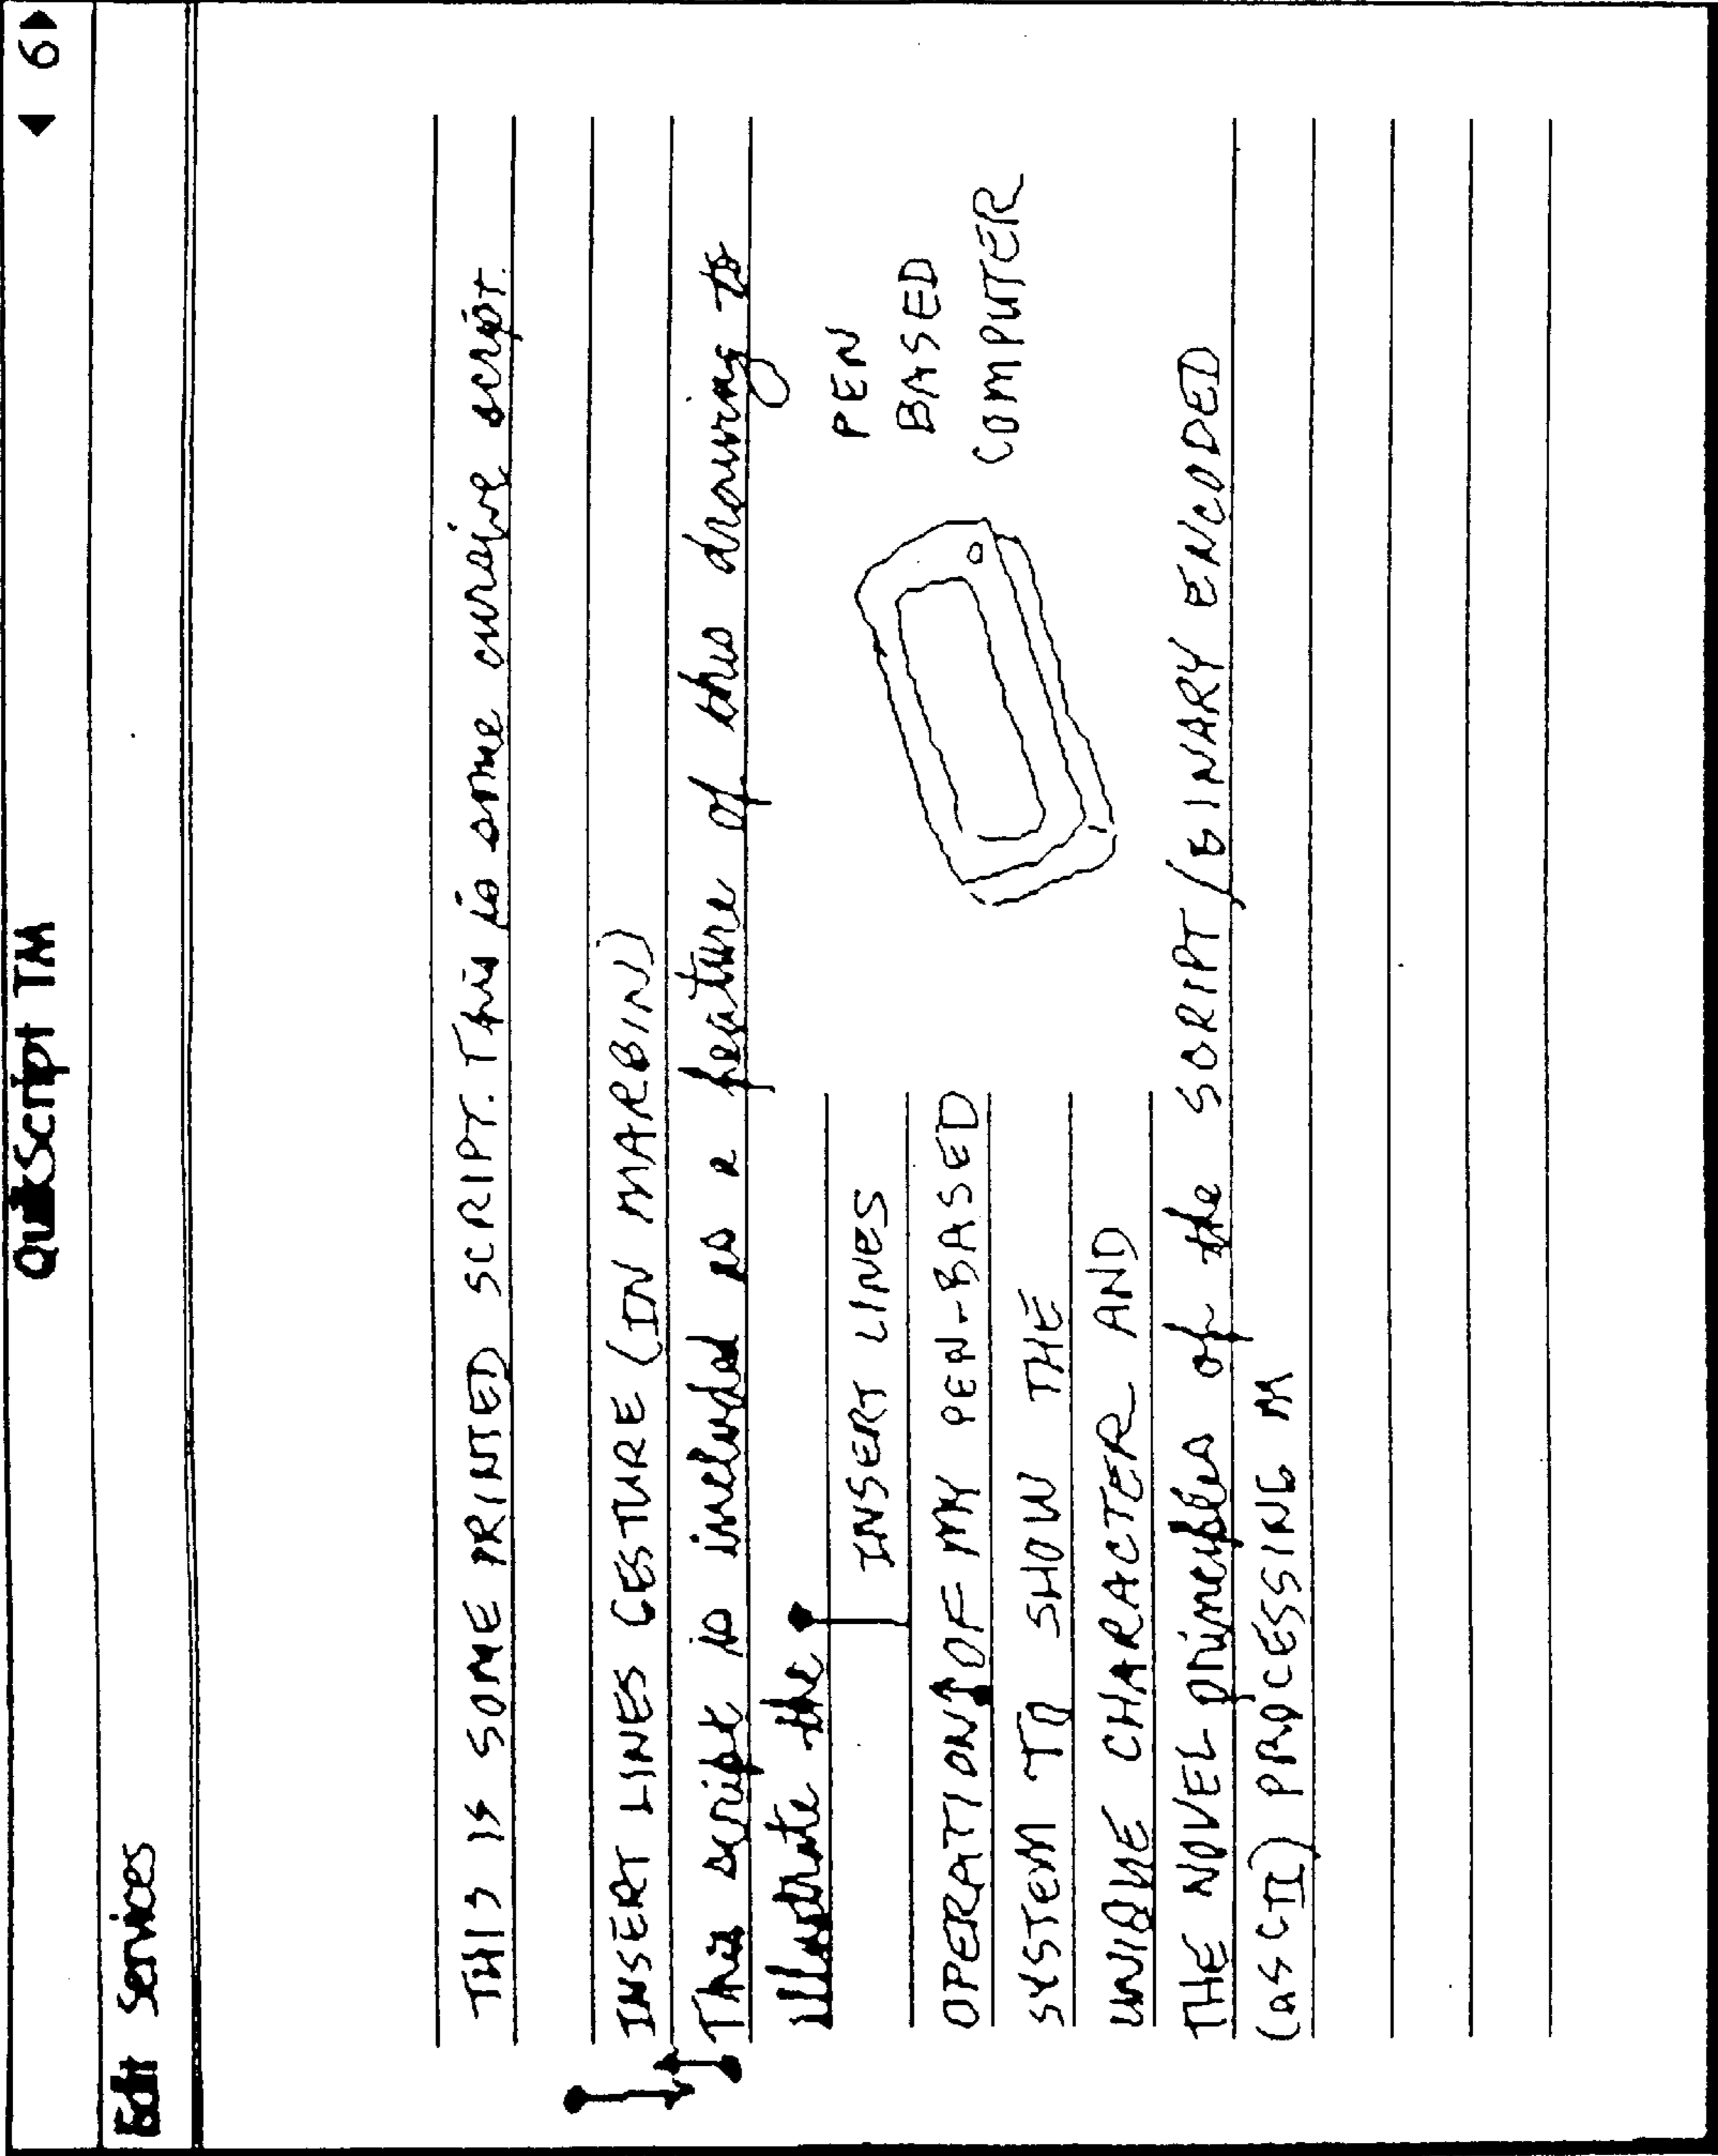 QuikScript TM
◀ 6▶
Edit Services
THIS IS SOME PRINTED SCRIPT. This is some cursive script.
INSERT LINES GESTURE (IN MARGIN)
This script is included as a feature of this drawing to
illustrate the
INSERT LINES
OPERATION OF MY PEN-BASED
SYSTEM TO SHOW THE
UNIQUE CHARACTER AND
THE NOVEL principles of the SCRIPT/BINARY ENCODED
(ASCII) PROCESSING M
PEN
BASED
COMPUTER